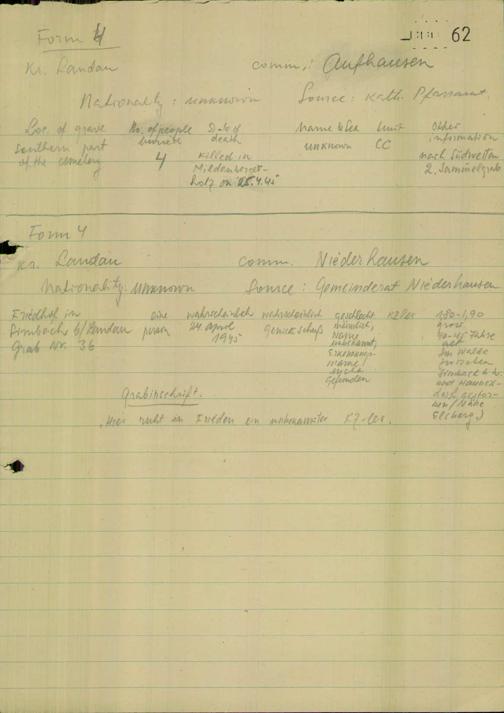 62
Form 4
Kr. Landau comm.: Aufhausen
Nationality: unknown Source: kath. Pfarramt
Loc. of grave No. of people Date of Name & Sex Unit Other
death information
southern part 4 killed in unknown CC nach Südwesten
of the cemetery
holz on 4.45
Form 4
Kr. Landau comm. Niederhausen
Nationality: unknown Source: Gemeinderat Niederhausen
Friedhof in eine wahrscheinlich wahrscheinlich geschlecht 1,80-1,90
Simbach b/Landau person 24. April Genickschuß männlich, gross
Grab Nr. 36 1945 Name 40-45 Jahre
unbekannt, alt
Im Walde
zwischen
nicht Simbach
gefunden und
Grabinschrift.
"Hier ruht in Frieden ein unbekannter KZ-ler.